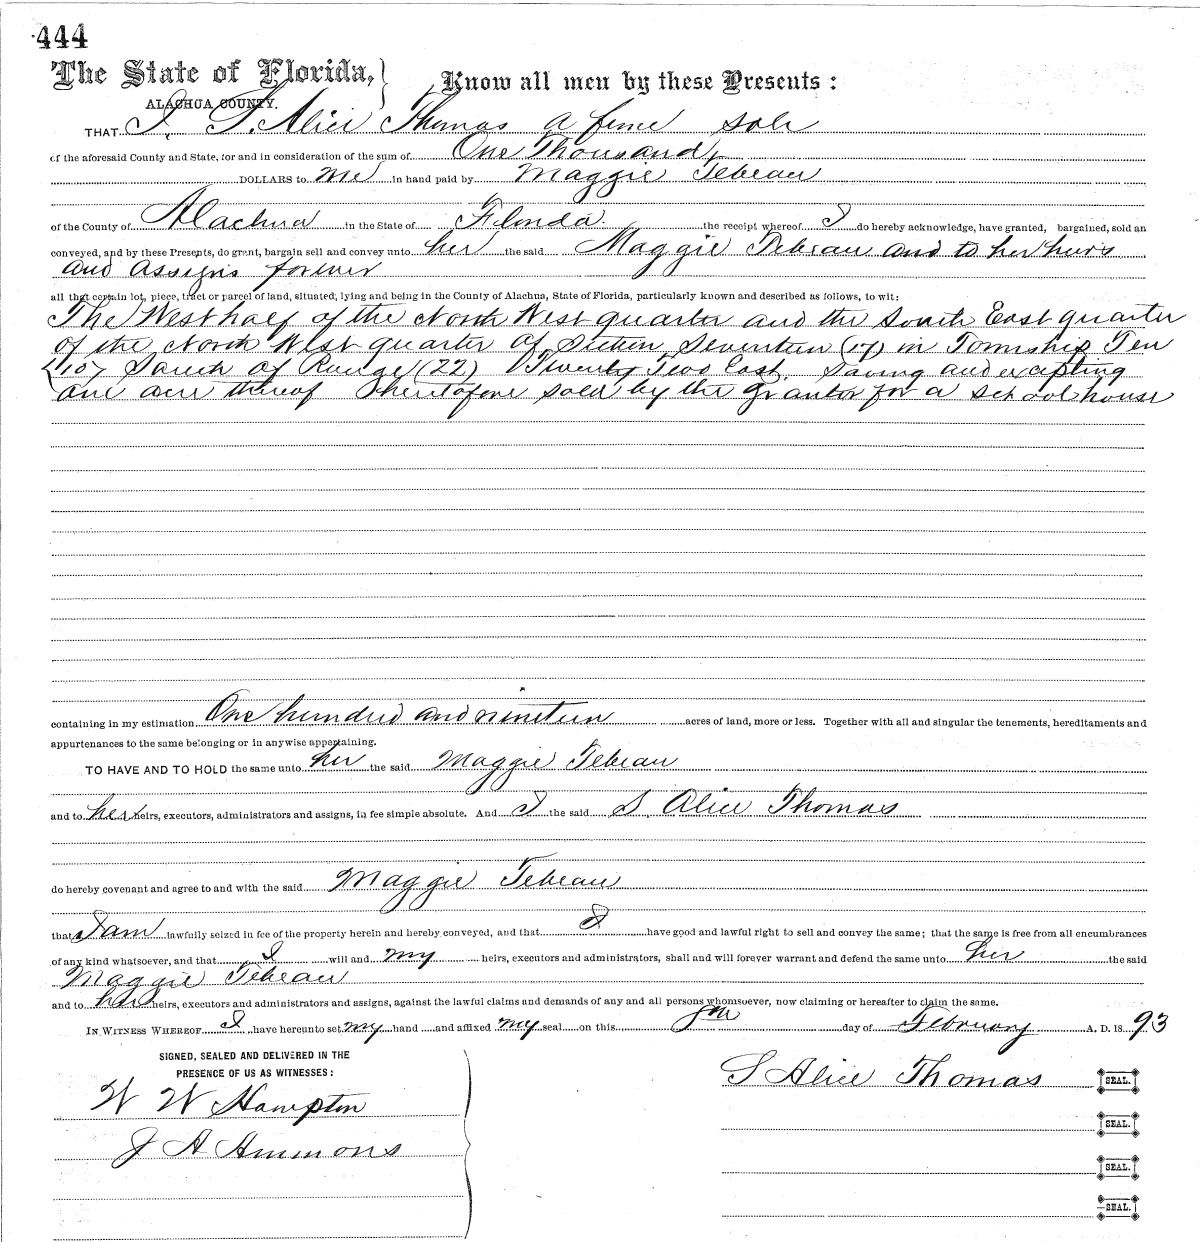 444
The State of Florida, } Know all men by these Presents:
ALACHUA COUNTY.
THAT I, S. Alice Thomas a feme sole
of the aforesaid County and State, for and in consideration of the sum of One Thousand
DOLLARS to me in hand paid by Maggie Tebeau
of the County of Alachua in the State of Florida the receipt whereof I do hereby acknowledge, have granted, bargained, sold an
conveyed, and by these Presents, do grant, bargain sell and convey unto her the said Maggie Tebeau and to her heirs
and assigns forever
all that certain lot, piece, tract or parcel of land, situated, lying and being in the County of Alachua, State of Florida, particularly known and described as follows, to wit:
The West half of the North West quarter and the South East quarter
of the North West quarter of Section Seventeen (17) in Township Ten
(10) South of Range (22) Twenty Two East. Saving and excepting
one acre thereof heretofore sold by the grantor for a school house
containing in my estimation One hundred and nineteen acres of land, more or less. Together with all and singular the tenements, hereditaments and
appurtenances to the same belonging or in anywise appertaining.
TO HAVE AND TO HOLD the same unto her the said Maggie Tebeau
and to her heirs, executors, administrators and assigns, in fee simple absolute. And I the said S. Alice Thomas
do hereby covenant and agree to and with the said Maggie Tebeau
that I am lawfully seized in fee of the property herein and hereby conveyed, and that I have good and lawful right to sell and convey the same; that the same is free from all encumbrances
of any kind whatsoever, and that I will and my heirs, executors and administrators, shall and will forever warrant and defend the same unto her the said
Maggie Tebeau
and to her heirs, executors and administrators and assigns, against the lawful claims and demands of any and all persons whomsoever, now claiming or hereafter to claim the same.
IN WITNESS WHEREOF I have hereunto set my hand and affixed my seal on this day of February A. D. 1893
SIGNED, SEALED AND DELIVERED IN THE
PRESENCE OF US AS WITNESSES:
S Alice Thomas SEAL.
W W Hampton
SEAL.
J A Ammons
SEAL.
SEAL.